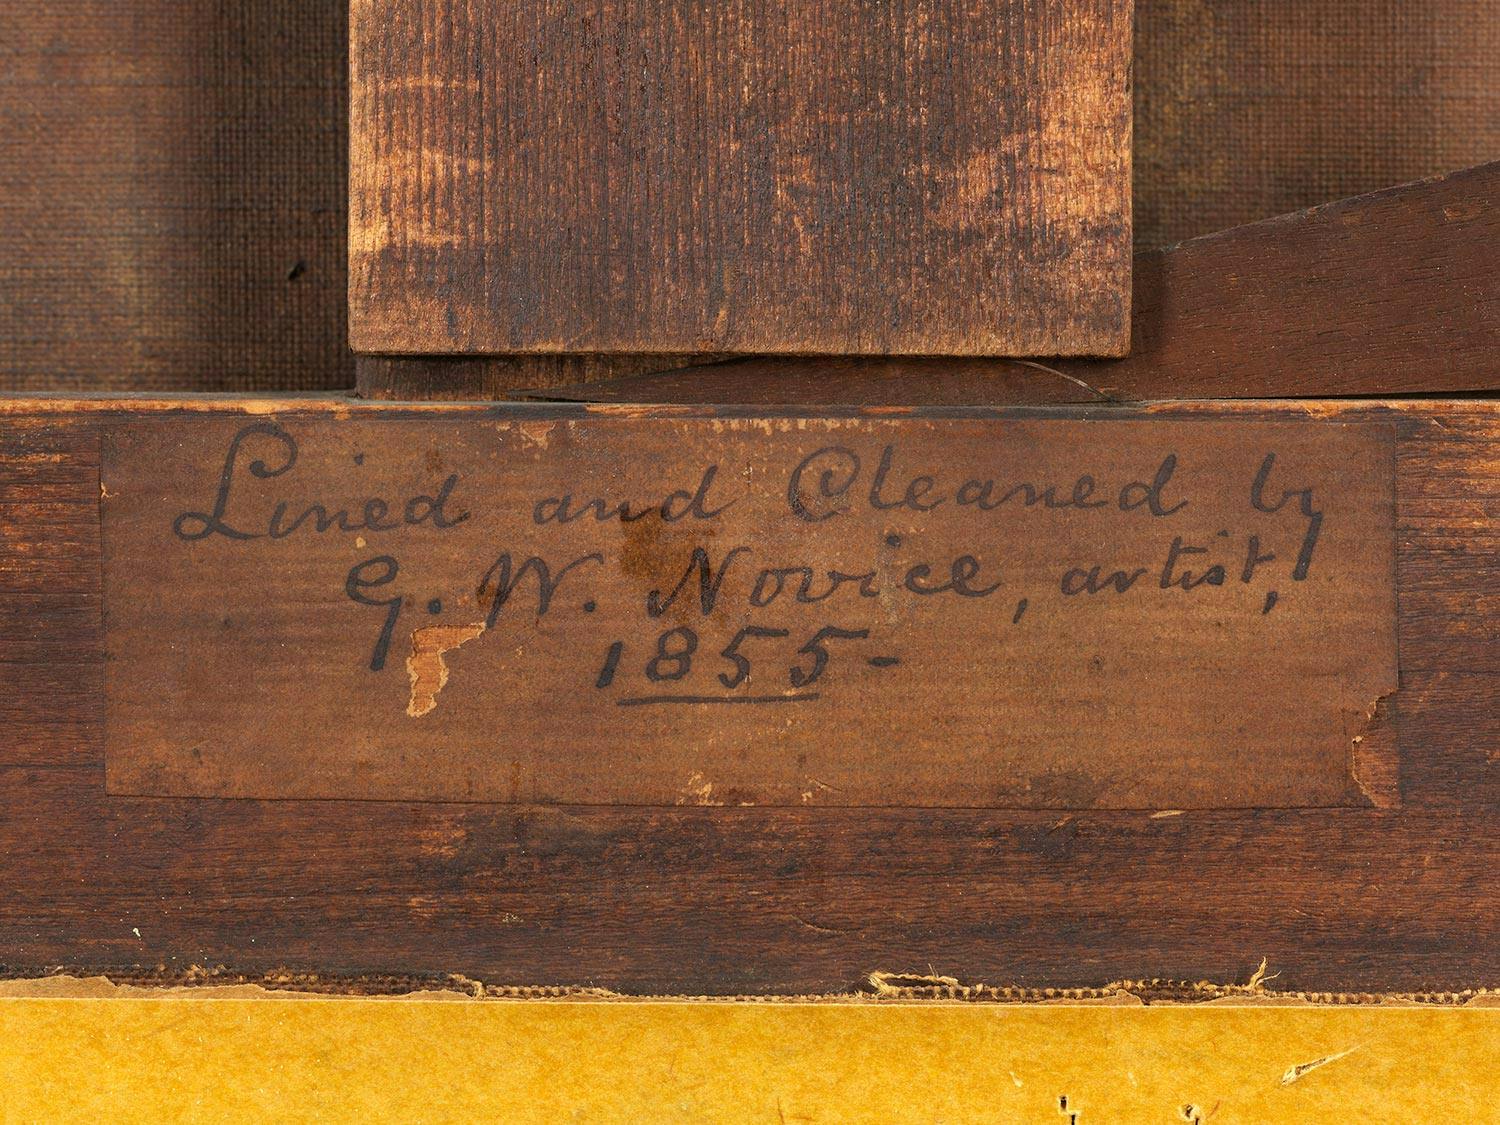 Lined and Cleaned by
G. W. Novice, artist,
1855-